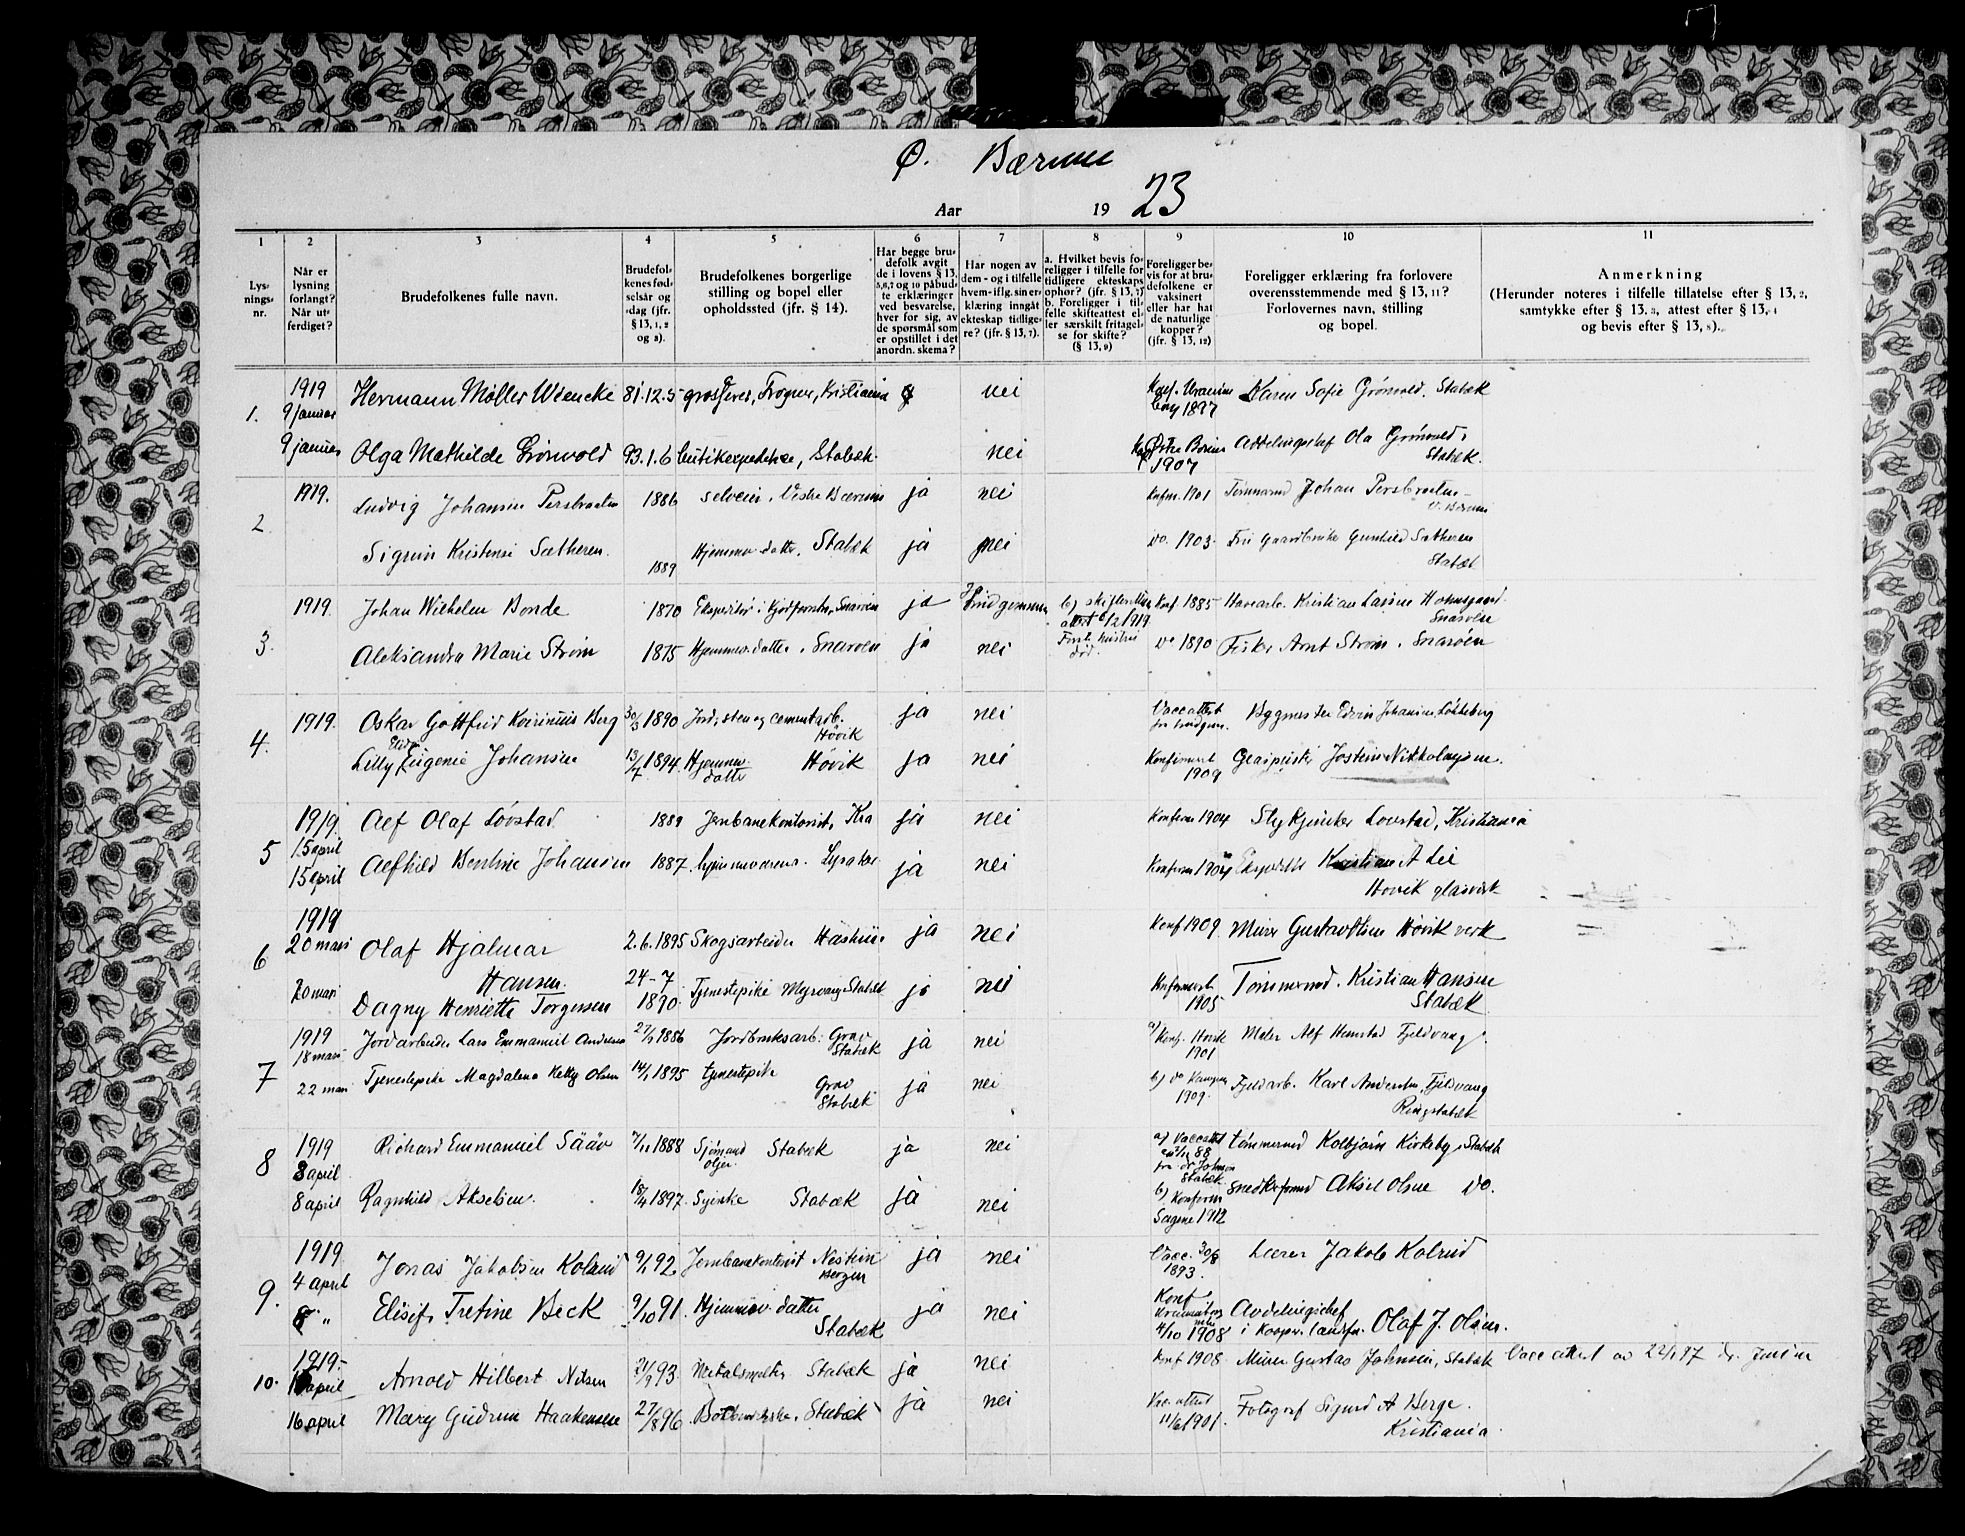 Ø. Bærum
Aar 19 23
1 2 3 4 5 6 7 8 9 10 11
Lysningsnr.
Når er lysning forlangt? Når utferdiget?
Brudefolkenes fulle navn.
Brudefolkenes fødselsår og dag (jfr. § 13, 1, 2 og 3).
Brudefolkenes borgerlige stilling og bopel eller opholdssted (jfr. § 14).
Har begge brudefolk avgit de i lovens § 13, 5, 6, 7 og 10 påbudte erklæringer ved besvarelse, hver for sig, av de spørsmål som er opstillet i det anordn. skema?
Har nogen av dem - og i tilfelle hvem - iflg. sin erklæring inngåt ekteskap tidligere? (jfr. § 13, 7).
a. Hvilket bevis foreligger i tilfelle for tidligere ekteskaps ophør? (jfr. § 13, 7)
b. Foreligger i tilfelle skifteattest eller særskilt fritagelse for skifte? (§ 13, 9)
Foreligger bevis for at brudefolkene er vaksinert eller har hat de naturlige kopper? (jfr. § 13, 12)
Foreligger erklæring fra forlovere overensstemmende med § 13, 11? Forlovernes navn, stilling og bopel.
Anmerkning (Herunder noteres i tilfelle tillatelse efter § 13, 2, samtykke efter § 13, 3, attest efter § 13, 4 og bevis efter § 13, 8).
1. 1919 9 januar Hermann Møller Wiencke 81.12.5 Frogner, Kristiania nei 1897 Karen Sofie Grönvold. Stabæk
9 januar Olga Mathilde Grönvold 93.1.6 Stabæk. nei Østre Bærum 1907 Avdelingschef Ola Grönvold, Stabæk.
2 1919. Ludvig Johansen Persbraaten 1886 selveier, Vestre Bærum ja nei Konfirm. 1901 Tømmermd Johan Persbraaten V. Bærum
Sigrun Kristensi Sætheren. 1889 Hjemmev. datter, Stabæk ja nei Do. 1903. Gunhild Sætheren Stabæk
3. 1919. Johan Wilhelm Bonde 1870 Snarøen ja Brudgommen b) skifteretten attest 6/2 1919 Konf. 1885 Kristian Lassen Snarøen
Aleksandra Marie Strøm 1875 Hjemmev. datter, Snarøen ja nei død. Do 1890 Fisker Arnt Strøm, Snarøen
4. 1919. Oskar Gottfrid Kvirinius Berg 30/3 1890 Jord, sten og cementarb. Høvik ja nei Vaccattest for brudgom. Bygmester Edvin Johansen Løkkeberg
Lilly Elida Eugenie Johansen 13/7 1894. Hjemmev. datter Høvik ja nei Konfirmert 1909 Jostein Nikkolaysen.
5 1919. 15 april Alf Olaf Lövstad. 1889 Jernbanekontorist, Kra ja nei Konfirm 1904 Stykjunker Lovstad, Kristiania
15 april Alfhild Bentine Johansen 1887. hjemmeværend. Lysaker ja nei Konfirm 1904 Ekspeditör Kristian A Lie Høvik glasverk
6 1919 20 mars Olaf Hjalmar Hansen. 2.6.1895 Skogsarbeider ja nei Konf 1909. Murer Gustav Olsen Høvik verk
20 mars Dagny Henriette Torgersen 24-7 1890. Tjenestepike Myrvang Stabæk ja nei Konfirmert 1905 Tømmermd. Kristian Hansen Stabæk
7 1919 18 mars Jordarbeider Lars Emmanuel Andersen 27/1 1886 Jordbruksarb. Grav Stabæk ja nei a) Konf. Høvik 1901 Maler Alf Hemstad Fjeldvang.
22 mars Tjenestepike Magdalena Ketty Olsen 14/1 1895 tjenestepike Grav Stabæk ja nei b) do 1909. Karl Andersen, Fjeldvang Ringstabæk
8 1919 8 april Richard Emmanuel Sääv 7/11 1888 Sjømand oljer Stabæk ja nei a) Vaccattest fra dr Johnson Stabæk tømmermd Kolbjørn Kirkeby, Stabæk
8 april Ragnhild Akselsen. 18/4 1897. Syerske Stabæk ja nei b) Konfirm Sagene 1912 snedkermd Aksel Olsen Do.
9. 1919 4 april Jonas Jakobsen Kolrud 9/1 92. Jernbanekontorist Nesttun Bergen ja nei Vacc. 30/8 1893. Lærer Jakob Kolrud
8 " Elisif Tretine Beck 9/10 91. Hjemmev. datter Stabæk ja nei Konf 4/10 1908 Avdelingschef i Koopr. landsfor. Olaf J. Olsen.
10. 1919.- april Arnold Hilbert Nilsen 21/9 93. Metalsmelter Stabæk ja nei Konf 1908 Murer Gustav Johnsen, Stabæk Vacc attest av 22/1 97
16 april Mary Gudrun Haakensen 27/8 96. Stabæk ja nei Vac. attest 11/6 1901. Fotograf Sigurd A Berge. Kristiania.